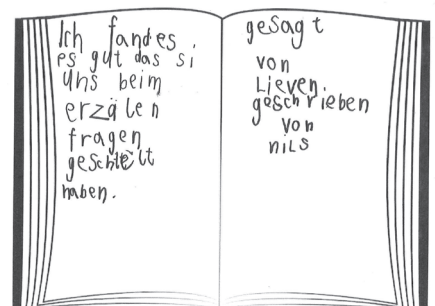 Ich fandes
es gut das si
uns beim
erzälen
fragen
geschtellt
haben.
gesagt
von
Lieven.
geschrieben
von
nils